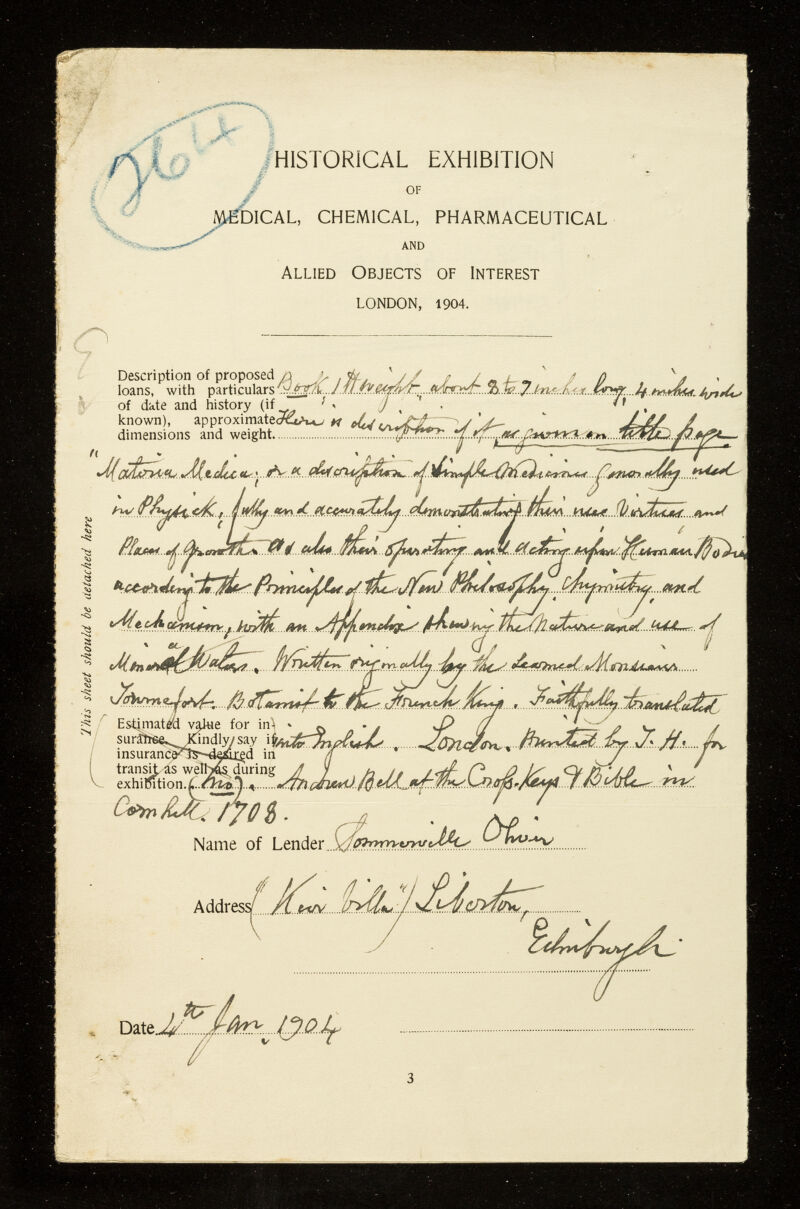 264
HISTORICAL EXHIBITION
OF
MEDICAL, CHEMICAL, PHARMACEUTICAL
AND
ALLIED OBJECTS OF INTEREST
LONDON, 1904.
Description of proposed loans, with particulars of date and history (if known), approximate dimensions and weight.
Book, 1 lb weight, about 8 to 7 inches long, 4 inches wide
Here is description of it, as given on title page
"Materia Medica; or a description of Simple Medicines generally used
in Physick, fully and accurately demonstrating their uses Virtues, and
Places of Growth. As also their operating and acting upon Human Bodies
according to the Principles of the New Philosophy, Chymistry, and
Mechanism, with an Appendix shewing the Nature and use of
Mineral Waters. Written originally by the Learned Monsieur
Tournefort. Botanist to the French King. Faithfully translated
into English. London. Printed by J. H. for
Andrew Bell at the Cross-Keys & Bible in
Cornhill. 1708.
Estimated value for insurance. Kindly say if insurance is desired in transit as well as during exhibition. (No).
Name of Lender Sommerville Oliver
Address ("Keir Villa") Liberton,
Edinburgh
Date 4th Jan, 1904
3
This sheet should be detached here